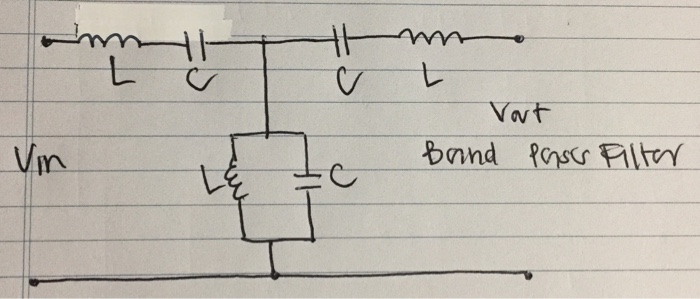 L C C L
Vout
Vin
Band Pass Filter
L C